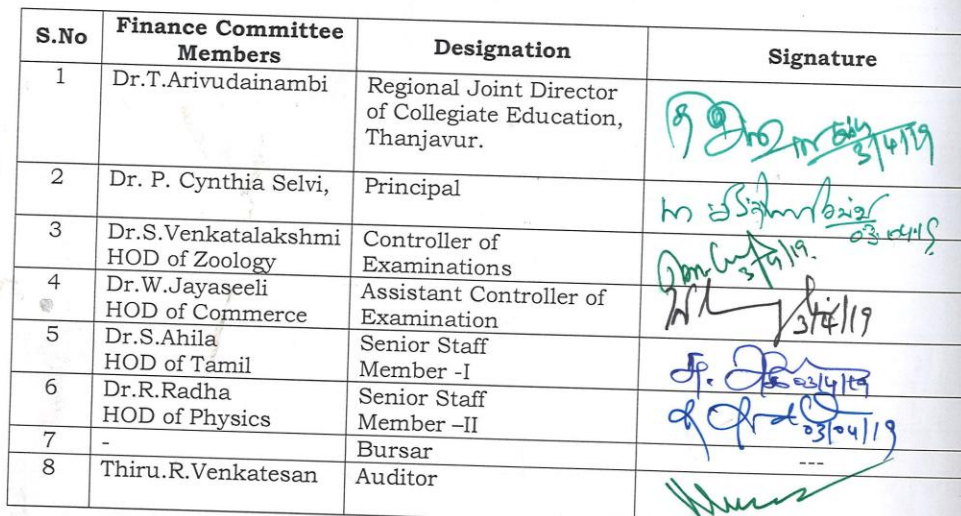 S.No
Finance Committee
Members
Designation
Signature
1
Dr.T.Arivudainambi
Regional Joint Director
of Collegiate Education,
Thanjavur.
3/4/19
2
Dr. P. Cynthia Selvi,
Principal
3
Dr.S.Venkatalakshmi
HOD of Zoology
Controller of
Examinations
3/4/19.
4
Dr.W.Jayaseeli
HOD of Commerce
Assistant Controller of
Examination
3/4/19
5
Dr.S.Ahila
HOD of Tamil
Senior Staff
Member -I
03/4/19
6
Dr.R.Radha
HOD of Physics
Senior Staff
Member –II
03/04/19
7
-
Bursar
---
8
Thiru.R.Venkatesan
Auditor